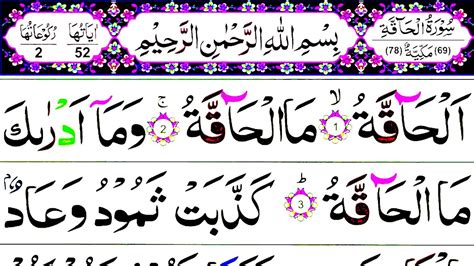 سُوْرَةُ الْحَآقَّةِ
(69) مَكِّيَّةٌ (78)
بِسْمِ اللهِ الرَّحْمٰنِ الرَّحِيْمِ
اٰيَاتُهَا 52
رُكُوْعَاتُهَا 2
اَلْحَآقَّةُ ۙ 1 مَا الْحَآقَّةُ ۚ 2 وَمَاۤ اَدْرٰىكَ
مَا الْحَآقَّةُ ؕ 3 كَذَّبَتْ ثَمُوْدُ وَعَادٌۢ